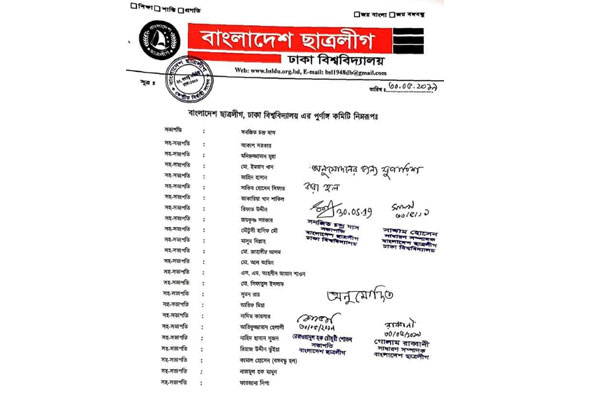 □শিক্ষা □শান্তি □প্রগতি □জয় বাংলা □জয় বঙ্গবন্ধু
বাংলাদেশ ছাত্রলীগ
ঢাকা বিশ্ববিদ্যালয়
Web: www.bsldu.org.bd, E-mail: bsl1948db@gmail.com
সূত্র ঃ তারিখ : ৩০.০৫.২০১৯
বাংলাদেশ ছাত্রলীগ, ঢাকা বিশ্ববিদ্যালয় এর পূর্ণাঙ্গ কমিটি নিম্নরূপঃ
সভাপতি : সনজিত চন্দ্র দাস
সহ-সভাপতি : আকাশ সরকার
সহ-সভাপতি : মনিরুজ্জামান
সহ-সভাপতি : মো. ইমরান খান
সহ-সভাপতি : হাসান
সহ-সভাপতি : রাকিব হোসেন সিফাত
সহ-সভাপতি : জাকারিয়া খান শাকিল
সহ-সভাপতি : রিফাত উদ্দীন
সহ-সভাপতি : জয়কৃষ্ণ সরকার
সহ-সভাপতি : মৌটুসী হানিফ মৌ
সহ-সভাপতি : মাসুম বিল্লাহ
সহ-সভাপতি : মো. জাহাঙ্গীর আলম
সহ-সভাপতি : মো. আল আমিন
সহ-সভাপতি : এস. এম. তাহসীন আমান শাওন
সহ-সভাপতি : মো. সিফাতুল ইসলাম
সহ-সভাপতি : সুমন রায়
সহ-সভাপতি : আরিফ মিয়া
সহ-সভাপতি : নাদিম কায়সার
সহ-সভাপতি : আতিকুজ্জামান হেলালী
সহ-সভাপতি : নাহিদ হাসান সুজন
সহ-সভাপতি : রিয়াজ উদ্দীন ভূঁইয়া
সহ-সভাপতি : কামাল হোসেন (বঙ্গবন্ধু হল)
সহ-সভাপতি : নাজমুল হক মামুন
সহ-সভাপতি : ফারজানা নিপা
অনুমোদনের জন্য সুপারিশ
করা হল
30.05.19
সনজিত চন্দ্র দাস
সভাপতি
বাংলাদেশ ছাত্রলীগ
ঢাকা বিশ্ববিদ্যালয়
সাদ্দাম হোসেন
সাধারণ সম্পাদক
বাংলাদেশ ছাত্রলীগ
ঢাকা বিশ্ববিদ্যালয়
অনুমোদিত
রেজওয়ানুল হক চৌধুরী শোভন
সভাপতি
বাংলাদেশ ছাত্রলীগ
রাব্বানী
গোলাম রাব্বানী
সাধারণ সম্পাদক
বাংলাদেশ ছাত্রলীগ